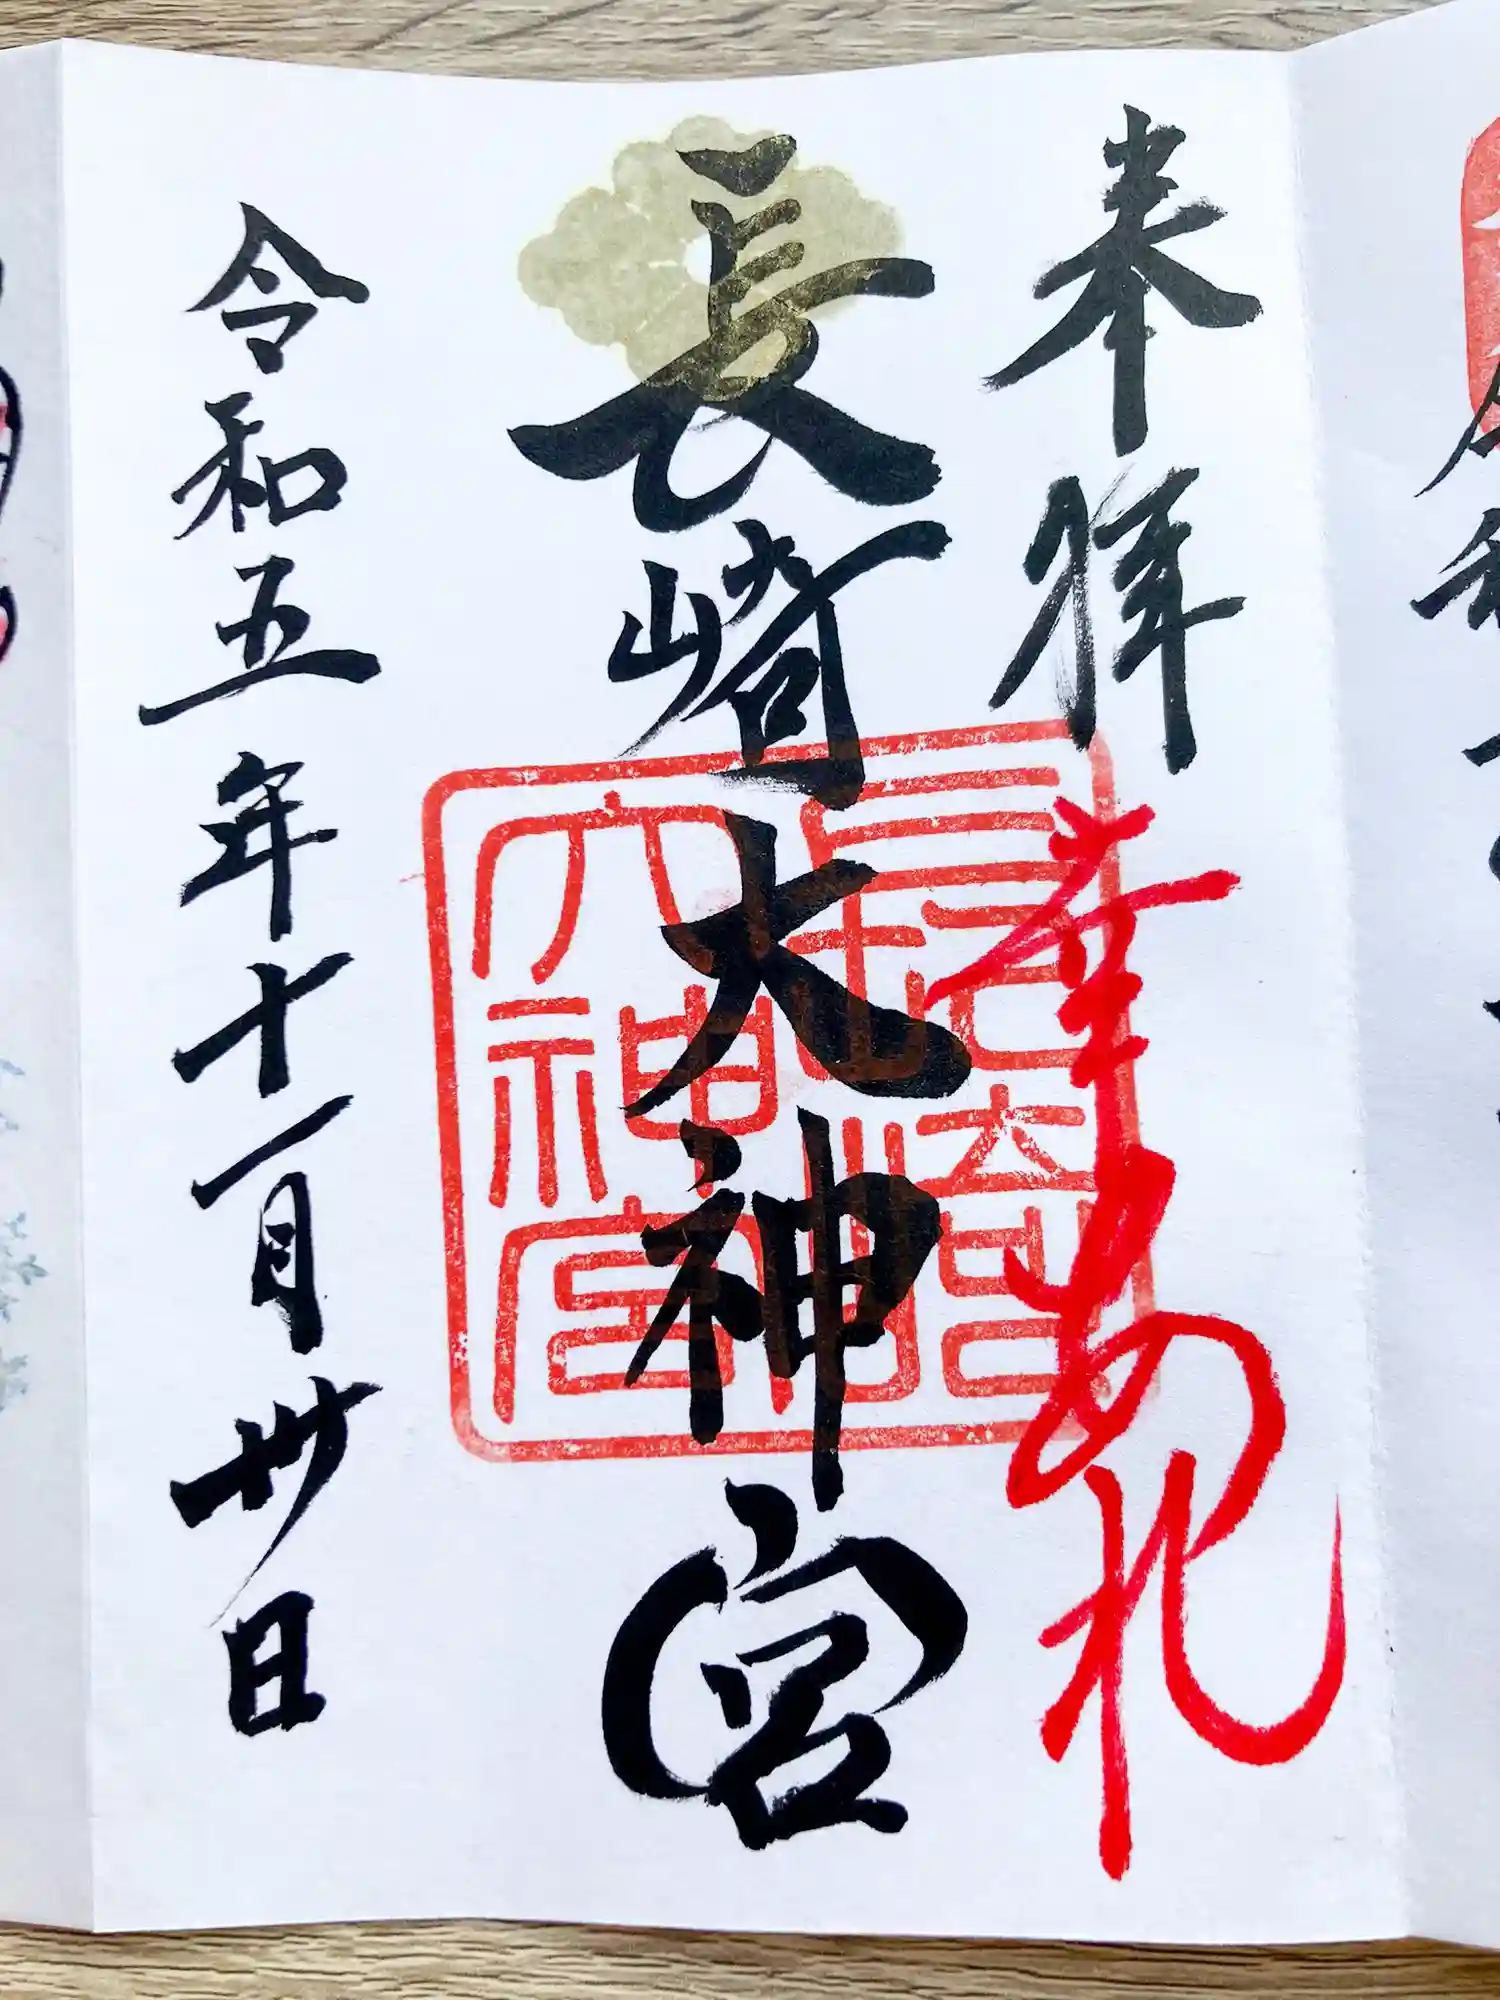 奉拝
華あれ
長崎大神宮
長崎
大神宮
令和五年十一月卅日